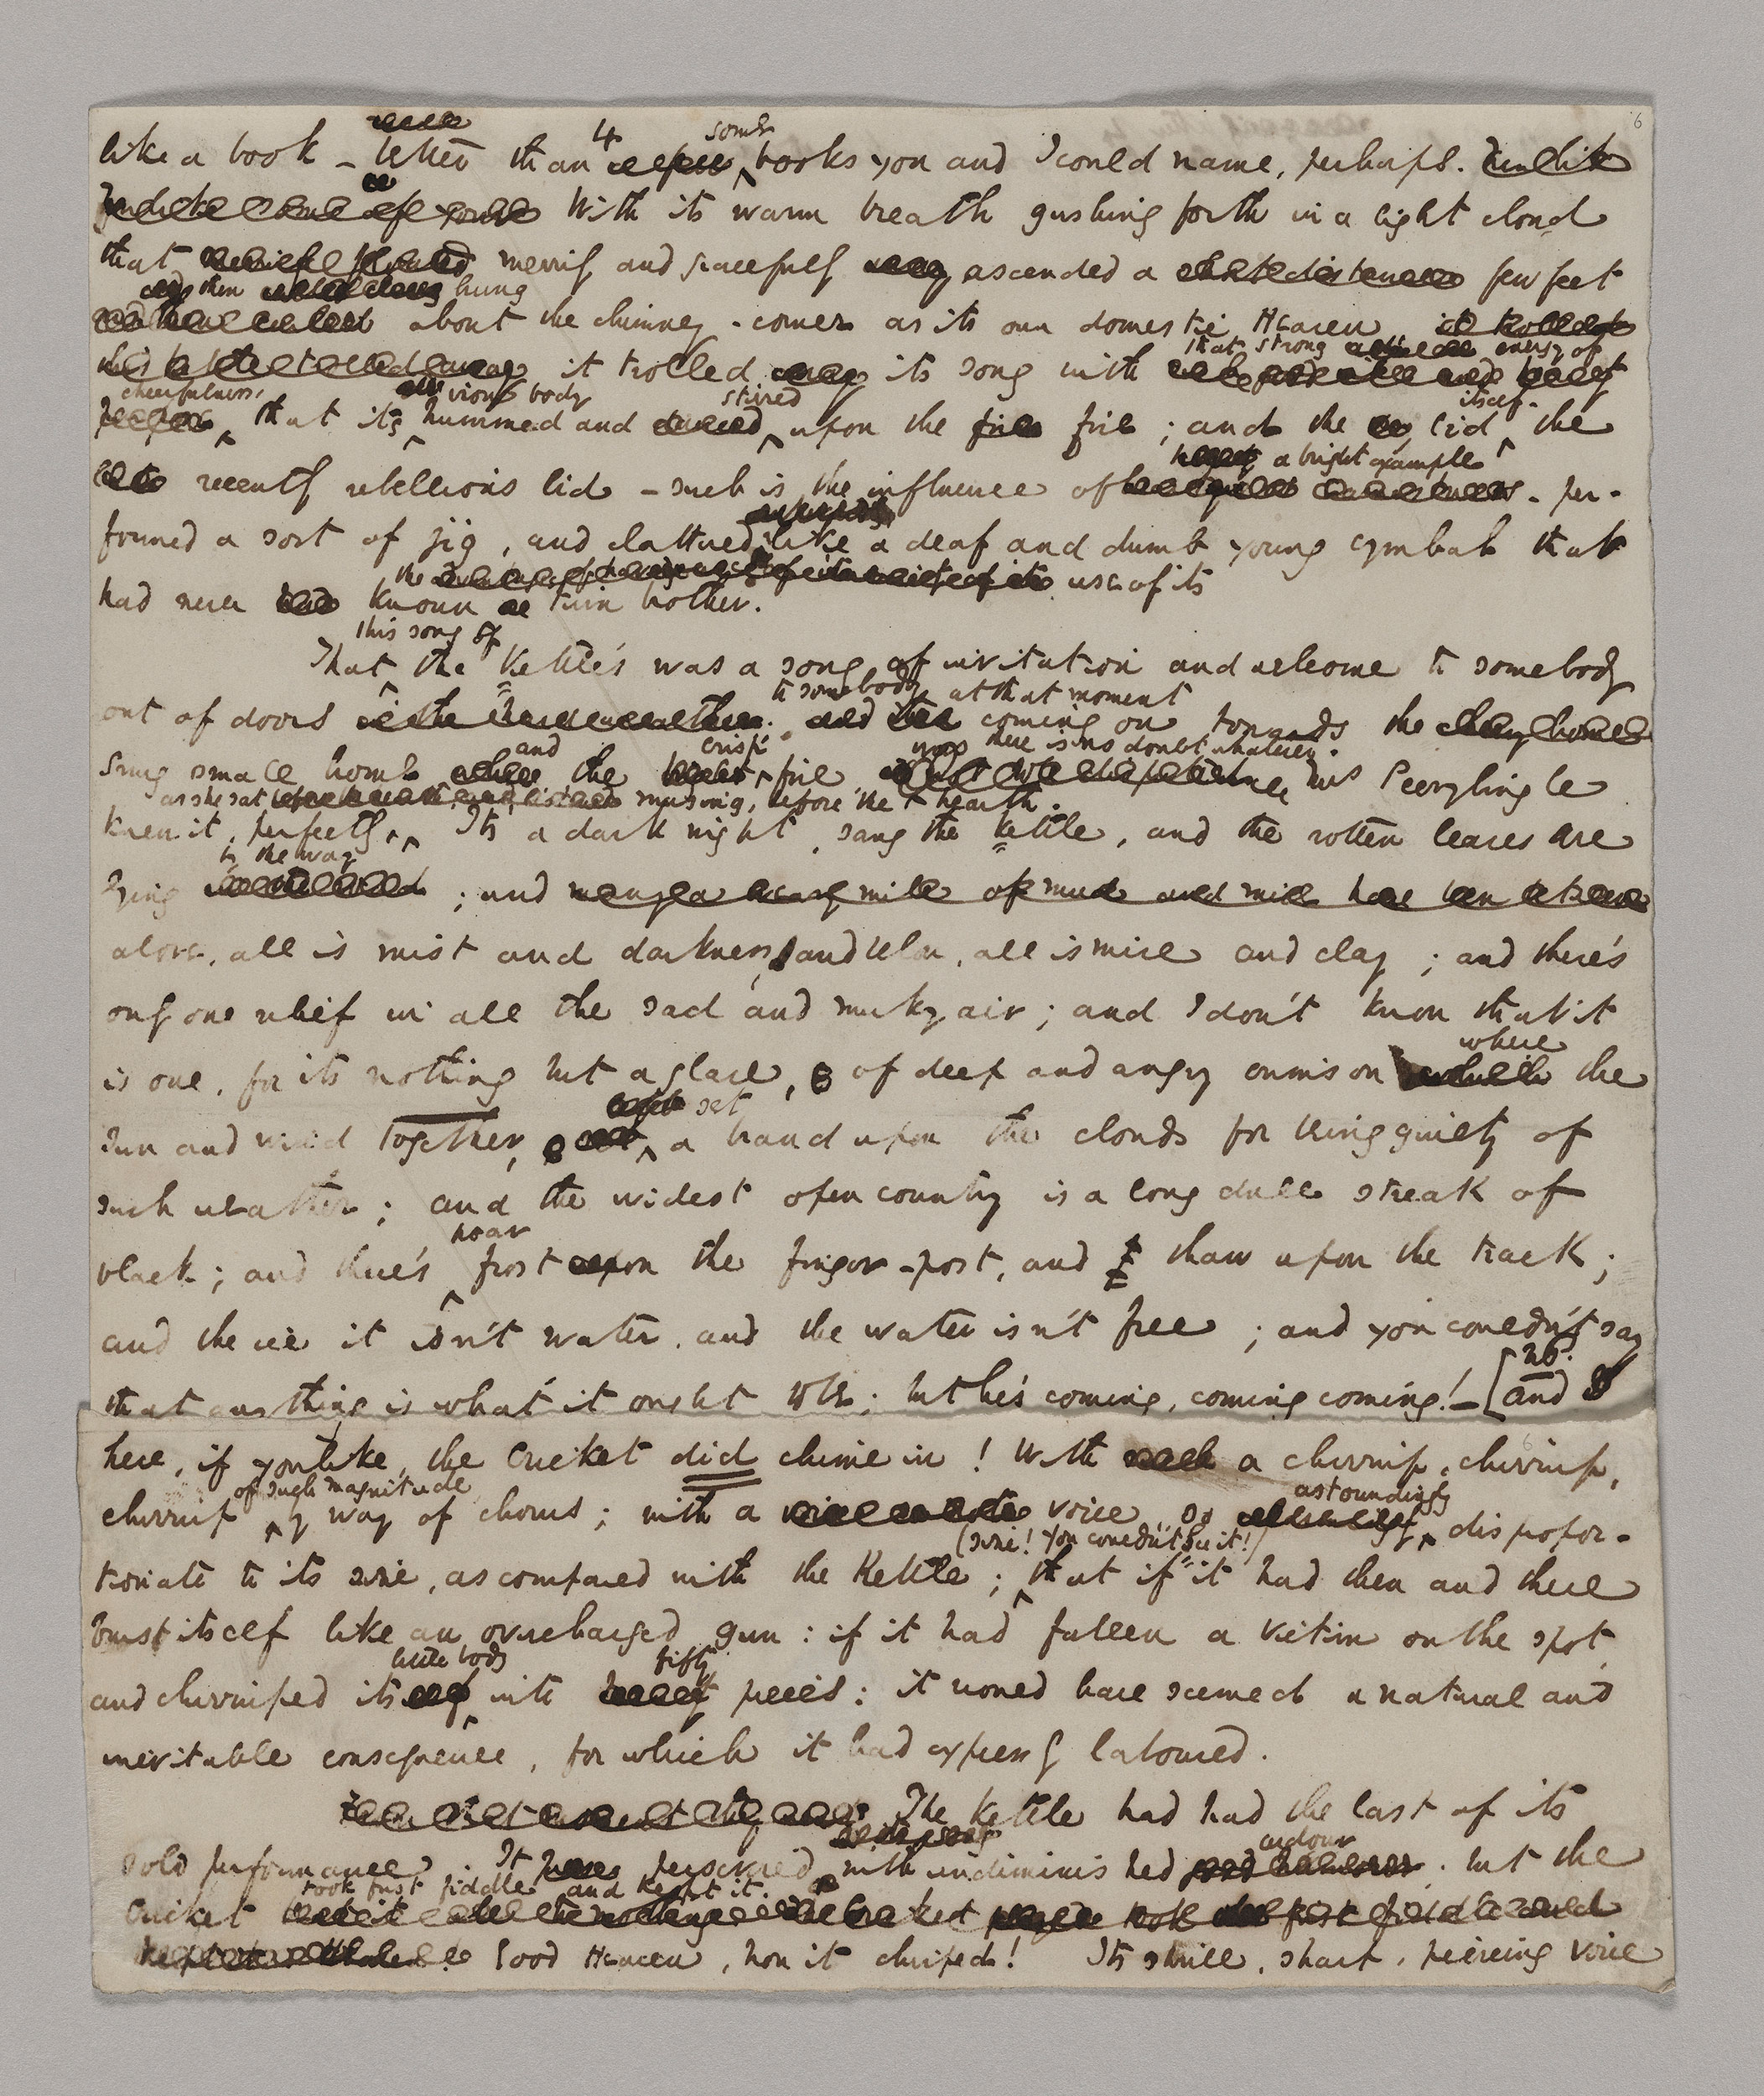 4
6
like a book - better than some books you and I could name, perhaps.
With its warm breath gushing forth in a light cloud
that merrily and gracefully ascended a few feet
then hung
about the chimney-corner as its own domestic Heaven,
it trolled its song with that strong energy of
cheerfulness, that its iron body hummed and stirred upon the fire; and the lid itself, the
recently rebellious lid - such is the influence of a bright example - per-
formed a sort of jig, and clattered like a deaf and dumb young cymbal that
had never known the use of its twin brother.
That this song of the Kettle's was a song of invitation and welcome to somebody
out of doors to somebody at that moment coming on towards the
snug small home and the crisp fire there is no doubt whatever. Mrs Peerybingle
knew it, perfectly, as she sat musing, before the hearth. Its a dark night, sang the kettle, and the rotten leaves are
lying by the way; and
above, all is mist and darkness, and below, all is mire and clay; and there's
only one relief in all the sad and murky air; and I don't know that it
is one, for its nothing but a glare, of deep and angry crimson where the
sun and wind together, set a brand upon the clouds for being guilty of
such weather; and the widest open country is a long dull streak of
black; and there's hoar frost upon the finger-post, and thaw upon the track;
and the ice it isn't water, and the water isn't free; and you couldn't say
that anything is what it ought to be; but he's coming, coming coming! - [and
here, if you like, the Cricket did chime in! With a chirrup, chirrup,
chirrup of such magnitude by way of chorus; with a voice so astoundingly dispropor-
tionate to its size, as compared with the Kettle; (size! you couldn't see it!) that if it had then and there
burst itself like an overcharged gun: if it had fallen a victim on the spot,
and chirruped its little body into fifty pieces: it would have seemed a natural and
inevitable consequence, for which it had expressly laboured.
The Kettle had had the last of its
solo performance. It persevered with undiminished ardour; but the
Cricket took first fiddle and kept it.
Good Heaven, how it chirped! Its shrill, sharp, piercing voice